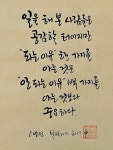 일을 해 본 사람들은
공감할 테지만
"되는 이유" 한 가지를
아는 것은
"안 되는 이유" 백 가지를
아는 것보다
중요하다